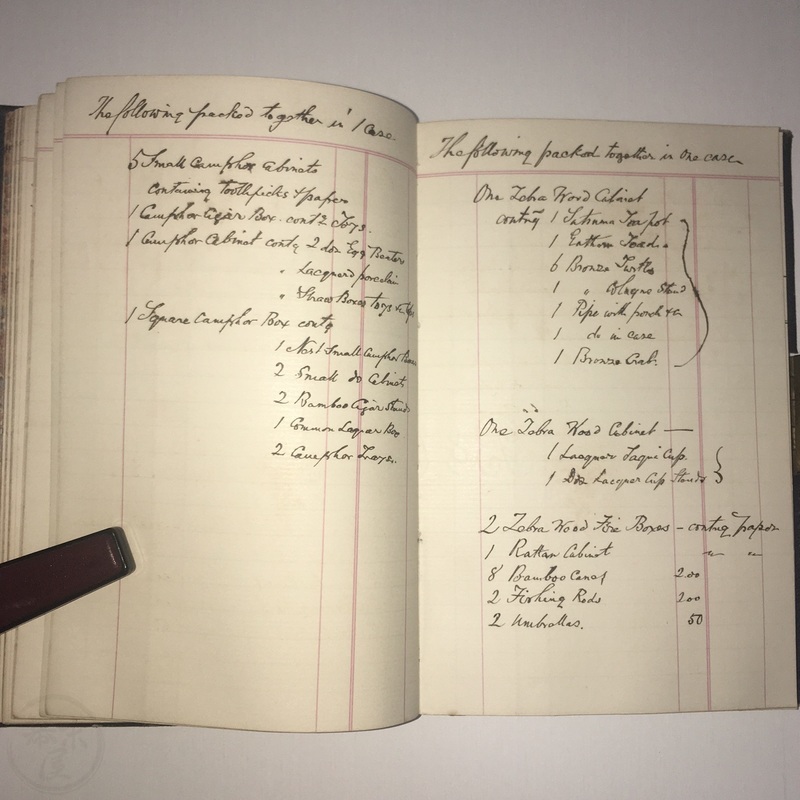 The following packed together in 1 Case.
5 Small Camphor Cabinets
containing toothpicks & paper
1 Camphor Cigar Box. contg 2 Toys.
1 Camphor Cabinet contg 2 doz Egg Beaters
" Lacquered porcelain
" Straw Boxes toys
1 Square Camphor Box contg
1 Nest Small Camphor
2 Small do Cabinets
2 Bamboo Cigar Stands
1 Common Lacquer Box
2 Camphor Trays.
The following packed together in One case
One Zebra Wood Cabinet
contng 1 Satsuma Tea pot
1 Earthern
6 Bronze Turtles
1 " Cologne Stand
1 Pipe with pouch &c
1 do in case
1 Bronze Crab.
One Zebra Wood Cabinet —
1 Lacquer Saqui Cup.
1 Doz Lacquer Cup Stands
2 Zebra Wood Fire Boxes - contng paper
1 Rattan Cabinet " "
8 Bamboo Canes 2.00
2 Fishing Rods 2.00
2 Umbrellas. 50